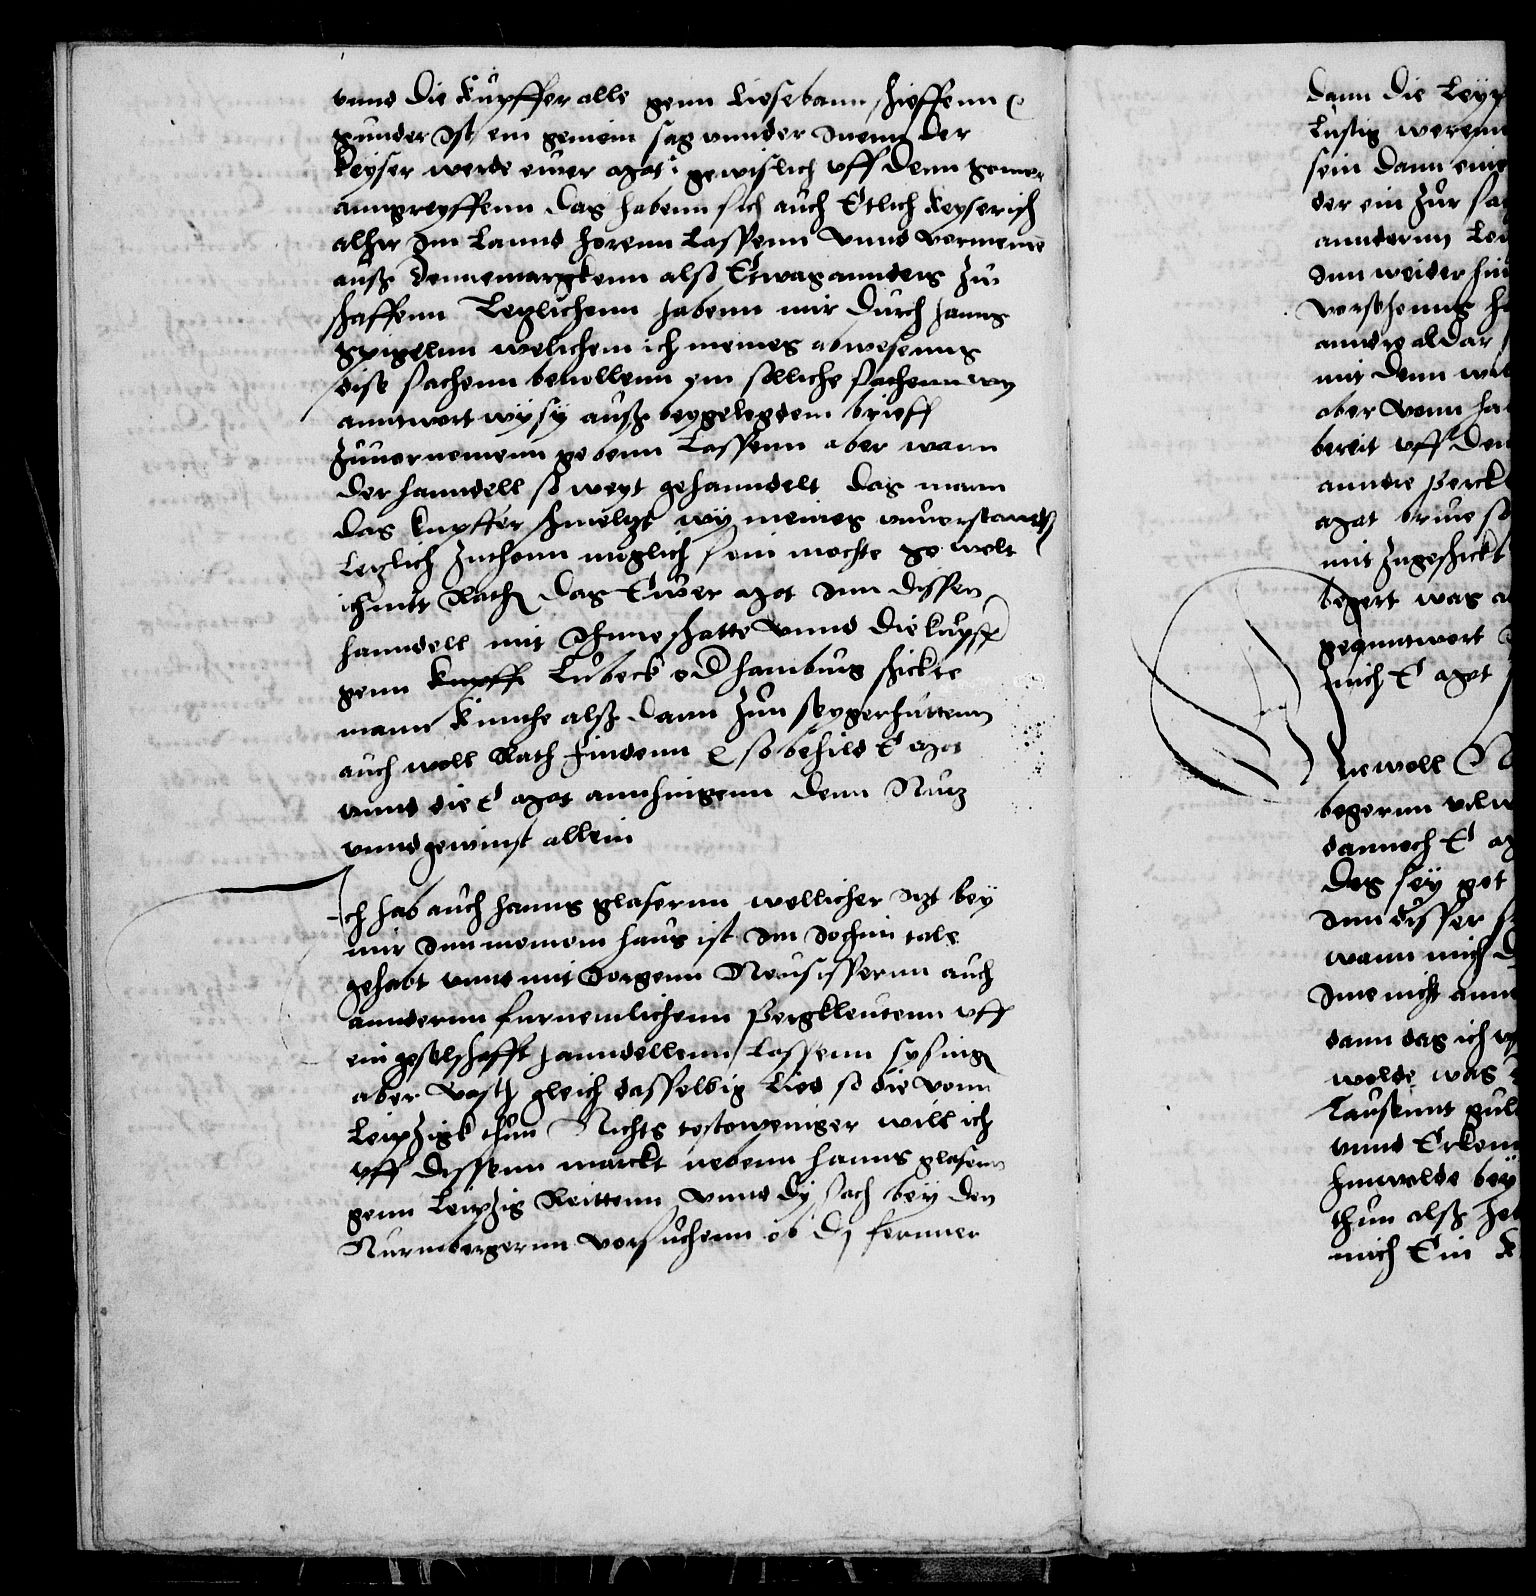 vnnd die Kupffer alle genn Liesebann schieffenn
sunder Ist ein gemein sag vnnder Inenn der
Keyser werde ewer mat gewislich vff denn somer
anngreyffenn das habenn sich auch Etlich Keyserisch
alhir Im Lannd horenn Lassenn vnnd vormeine
auß Dennemargkenn alß Etwas annders zu
schaffenn Letzlichenn habenn mir durch hanns
Spigelnn welichem ich meines abwesenns
dise sachenn beuollenn ein solliche
anntwort wy sy auß beygelegdem brieff
zuuornemenn gebenn Lassenn aber wann
der hanndell so weyt gehanndelt das mann
das kupffer schmeltzt wy meines vnuorstandts
Letzlich zuthonn muglich sein mochte so wolt
ich mit Rath das Ewer mat Inn dissen
hanndell mit Ihnne hatte vnnd die kupffer
genn Lubeck oder hamburg schickte
mann kunthe alß dann zun seygerhuttenn
auch woll Rath findenn so behild E mat
vnnd die E mat annhingenn denn Nutz
vnnd gewinst allein
Ich hab auch hanns glasernn wellicher Itzt bey
mir Inn meinem haus ist Im Jochim tale
gehabt vnnd mit Jorgenn Neusessernn auch
anndernn furnemlichenn Bergkleutenn vff
ein geselschafft hanndellenn Lassenn sy singen
aber vast gleich dasselbig Lied so die vonn
Leipzigk thun Nichts desto weniger will ich
vff dissenn marckt nebenn hanns glasernn
genn Leipzig Reittenn vnnd dy sach bey den
Nurmbergernn vorsuchenn ob dy fernner
dann die Leyp
Lustig werenn
sein dann eine
der ein zur sa
anndernn
Inn weider hin
vorsehenns
anndre aldar
mit denn
aber vonn ha
bereit vff den
anndre Berck
mat so
mit zugeschickt
begert was
geanntwort
mich E mat
Wiewoll
begernn
dannoch E
Das sey got
Inn disser
wann mich
Ime nicht ann
dann das ich
wolde was
Tausennt gul
vnnd Erkenn
hinwolde bey
thun alß
mich Ein